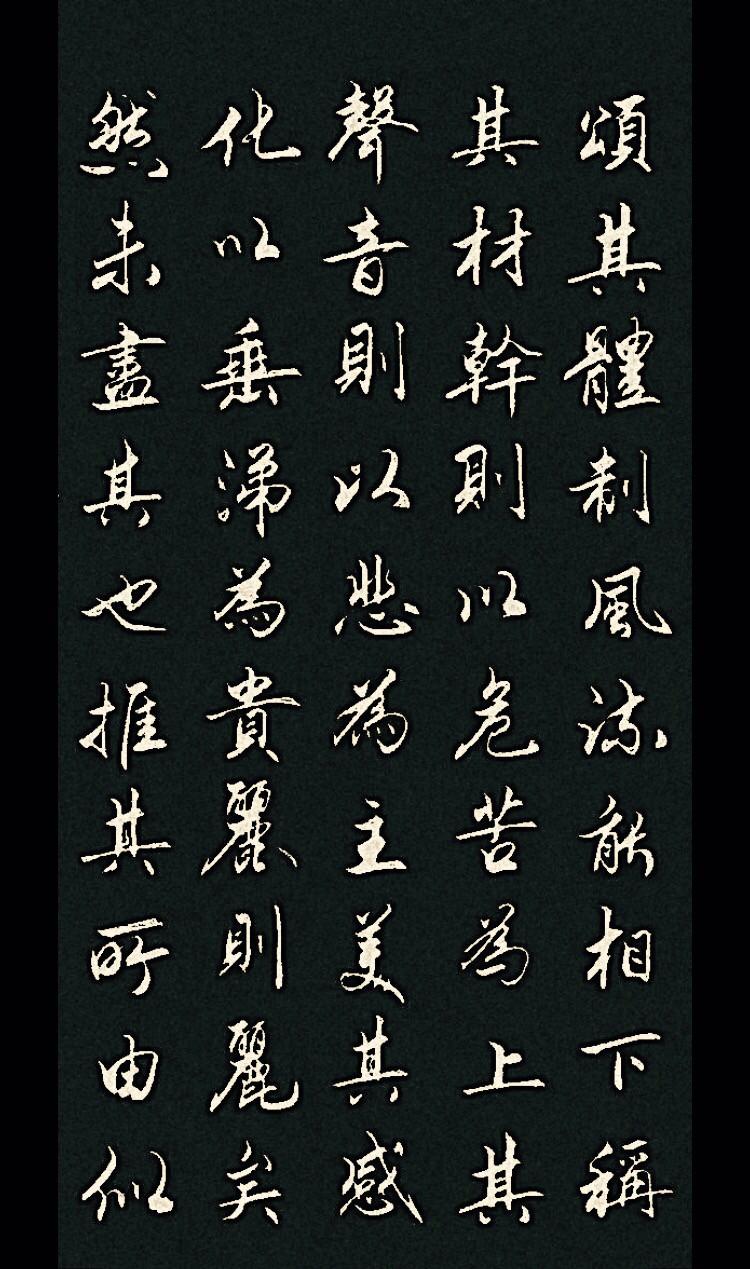 頌其體制風流能相下稱
其材幹則以危苦為上其
聲音則以悲為主美其感
化以垂涕為貴麗則麗矣
然未盡其也推其所由似